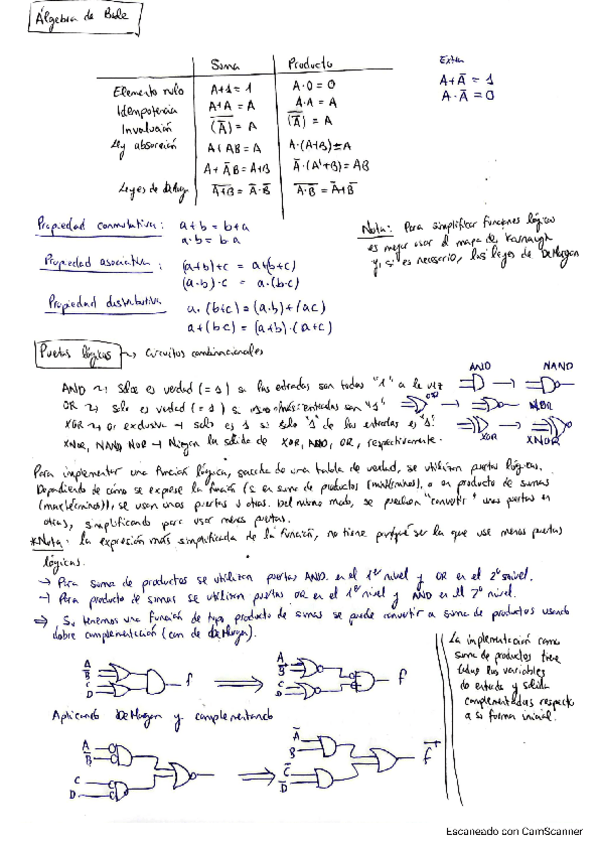 Álgebra de Bole
Suma Producto
Elemento nulo A+1=1 A·0=0
Idempotencia A+A=A A·A=A
Involución (A̿)=A (A̿)=A
Ley absorción A+AB=A A·(A+B)=A
A+A̅B=A+B A̅·(A'+B)=AB
Leyes de DMorg A̅+̅B̅=A̅·B̅ A̅·̅B̅=A̅+B̅
Extra
A+A̅=1
A·A̅=0
Propiedad conmutativa: a+b=b+a
a·b=b·a
Propiedad asociativa: (a+b)+c=a+(b+c)
(a·b)·c=a·(b·c)
Propiedad distributiva a·(b+c)=(a·b)+(ac)
a+(bc)=(a+b)·(a+c)
Nota: Para simplificar funciones lógicas
es mejor usar el mapa de Karnaugh
y, si es necesario, las leyes de DeMorgan
Puertas lógicas → Circuitos combinacionales
AND → Sólo es verdad (=1) si las entradas son todas "1" a la vez
OR → solo es verdad (=1) si una o más entradas son "1"
XOR → or exclusiva → solo es 1 si sólo 1 de las entradas es "1"
XNOR, NAND, NOR → Niegan la salida de XOR, AND, OR, respectivamente.
AND NAND
OR NOR
XOR XNOR
Para implementar una función lógica, sacada de una tabla de verdad, se utilizan puertas lógicas.
Dependiendo de cómo se exprese la función (si en suma de productos (minitérminos), o en producto de sumas
(maxitérminos)), se usan unas puertas u otras. Del mismo modo, se pueden "convertir" unas puertas en
otras, simplificando para usar menos puertas.
*Nota: la expresión más simplificada de la función, no tiene porqué ser la que use menos puertas
lógicas.
→ Para suma de productos se utilizan puertas AND en el 1er nivel y OR en el 2º nivel.
→ Para producto de sumas se utilizan puertas OR en el 1er nivel y AND en el 2º nivel.
⇒ Si tenemos una función de tipo producto de sumas se puede convertir a suma de productos usando
doble complementación (con de DeMorgan).
A
B̅
C
D
f
A
B̅
C
D
f
La implementación como
suma de productos tiene
todas las variables
de entrada y salida
complementadas respecto
a su forma inicial.
Aplicando DeMorgan y complementando
A
B̅
C
D
A̅
B
C̅
D̅
f̅
Escaneado con CamScanner